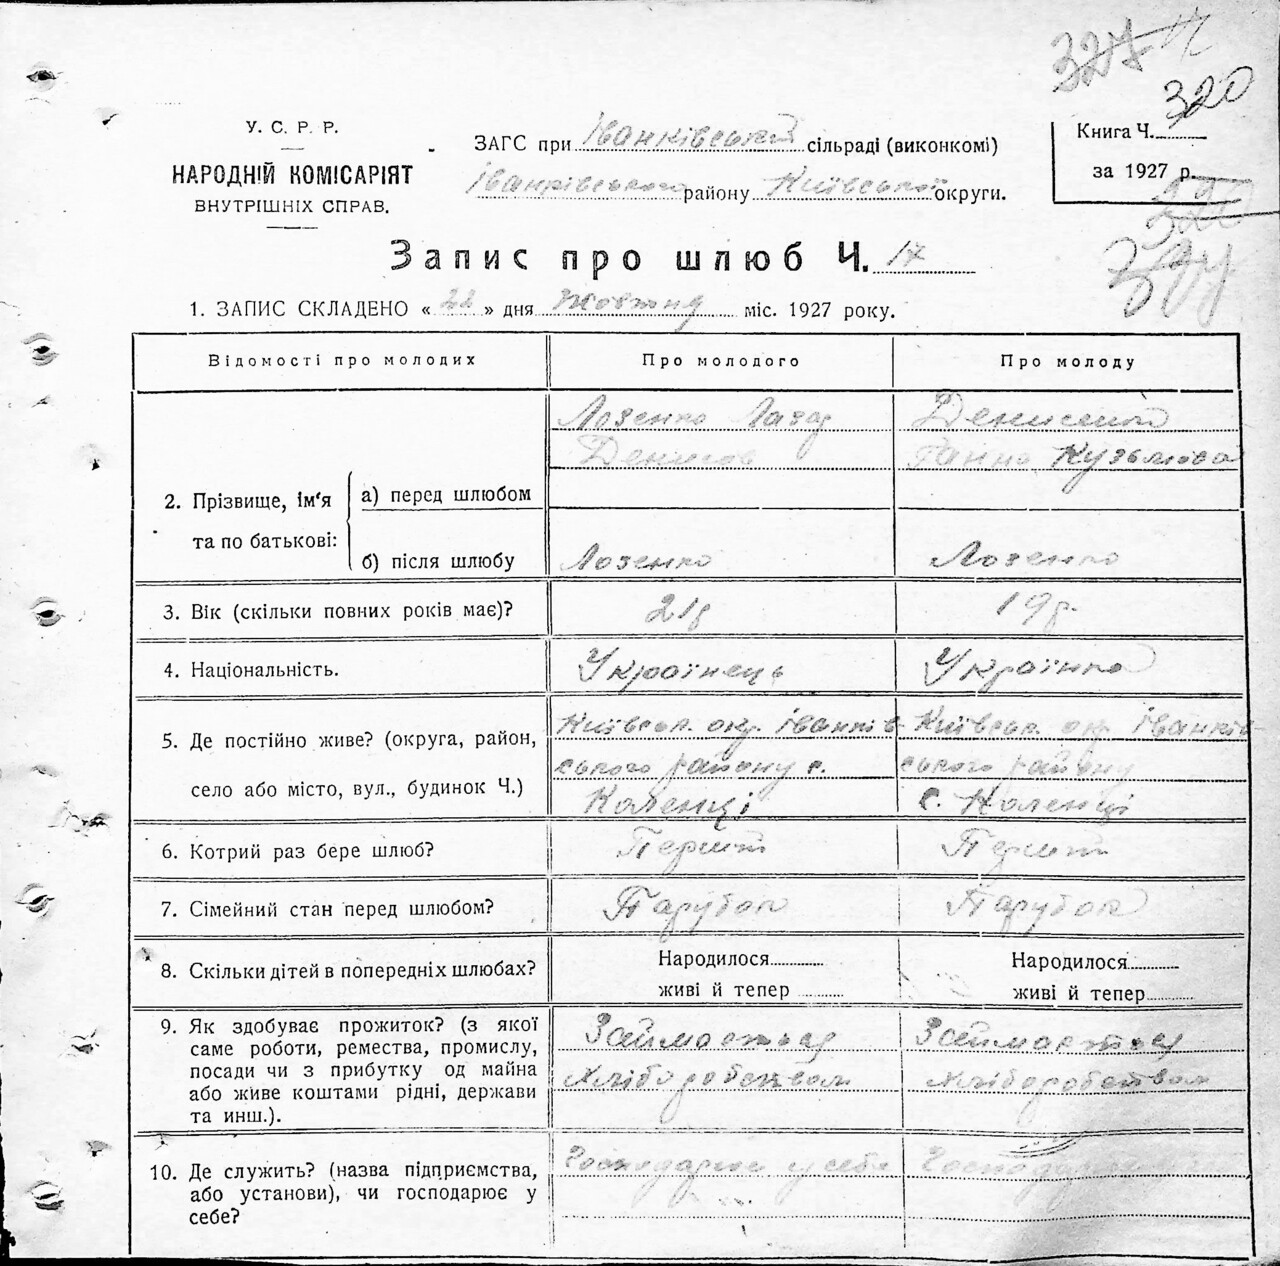 327
320
У. С. Р. Р.
НАРОДНІЙ КОМІСАРІЯТ
ВНУТРІШНІХ СПРАВ.
ЗАГС при Іванківській сільраді (виконкомі)
Іванківського району Київської округи.
Книга Ч.
за 1927 р.
320
Запис про шлюб Ч. 17
1. ЗАПИС СКЛАДЕНО « 22 » дня Жовтня міс. 1927 року.
Відомості про молодих
Про молодого
Про молоду
2. Прізвище, ім'я та по батькові:
а) перед шлюбом
Лозенко Лазар
Денисов
Денисенко
Ганна Кузьмова
б) після шлюбу
Лозенко
Лозенко
3. Вік (скільки повних років має)?
21р
19р.
4. Національність.
Українець
Українка
5. Де постійно живе? (округа, район,
село або місто, вул., будинок Ч.)
Київськ. окр. Іванків
ського району с.
Коленці
Київськ. окр. Іванків
ського району
с. Коленці
6. Котрий раз бере шлюб?
Перший
Перший
7. Сімейний стан перед шлюбом?
Парубок
Парубок
8. Скільки дітей в попередніх шлюбах?
Народилося
живі й тепер
Народилося
живі й тепер
9. Як здобуває прожиток? (з якої
саме роботи, ремества, промислу,
посади чи з прибутку од майна
або живе коштами рідні, держави
та инш.).
Займаеться
хліборобством
Займаеться
хліборобством
10. Де служить? (назва підприємства,
або установи), чи господарює у
себе?
Господарює у себе
Господарює